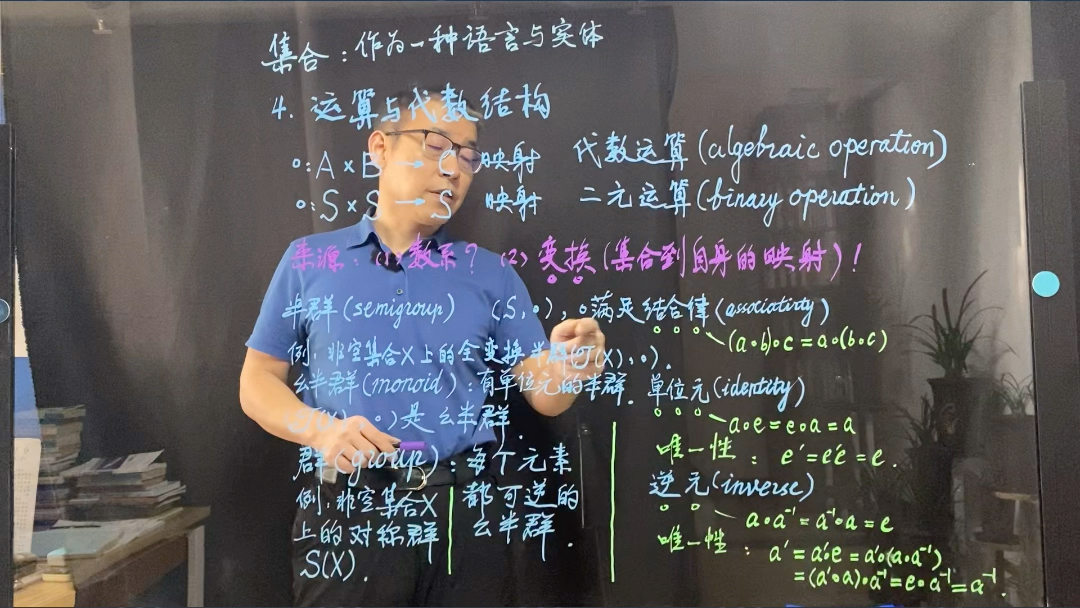 集合：作为一种语言与实体
4. 运算与代数结构
∘: A × B → C 映射 代数运算 (algebraic operation)
∘: S × S → S 映射 二元运算 (binary operation)
来源：(1) 数系？ (2) 变换 (集合到自身的映射)！
半群 (semigroup) (S, ∘), ∘满足结合律 (associativity)
(a∘b)∘c = a∘(b∘c)
例：非空集合X上的全变换半群 (T(X), ∘).
幺半群 (monoid)：有单位元的半群. 单位元 (identity)
a∘e = e∘a = a
(T(X), ∘) 是幺半群.
唯一性：e' = e'e = e.
群 (group)：每个元素
都可逆的
幺半群.
逆元 (inverse)
a∘a⁻¹ = a⁻¹∘a = e
例：非空集合X
上的对称群
S(X).
唯一性：a' = a'∘e = a'∘(a∘a⁻¹)
= (a'∘a)∘a⁻¹ = e∘a⁻¹ = a⁻¹.